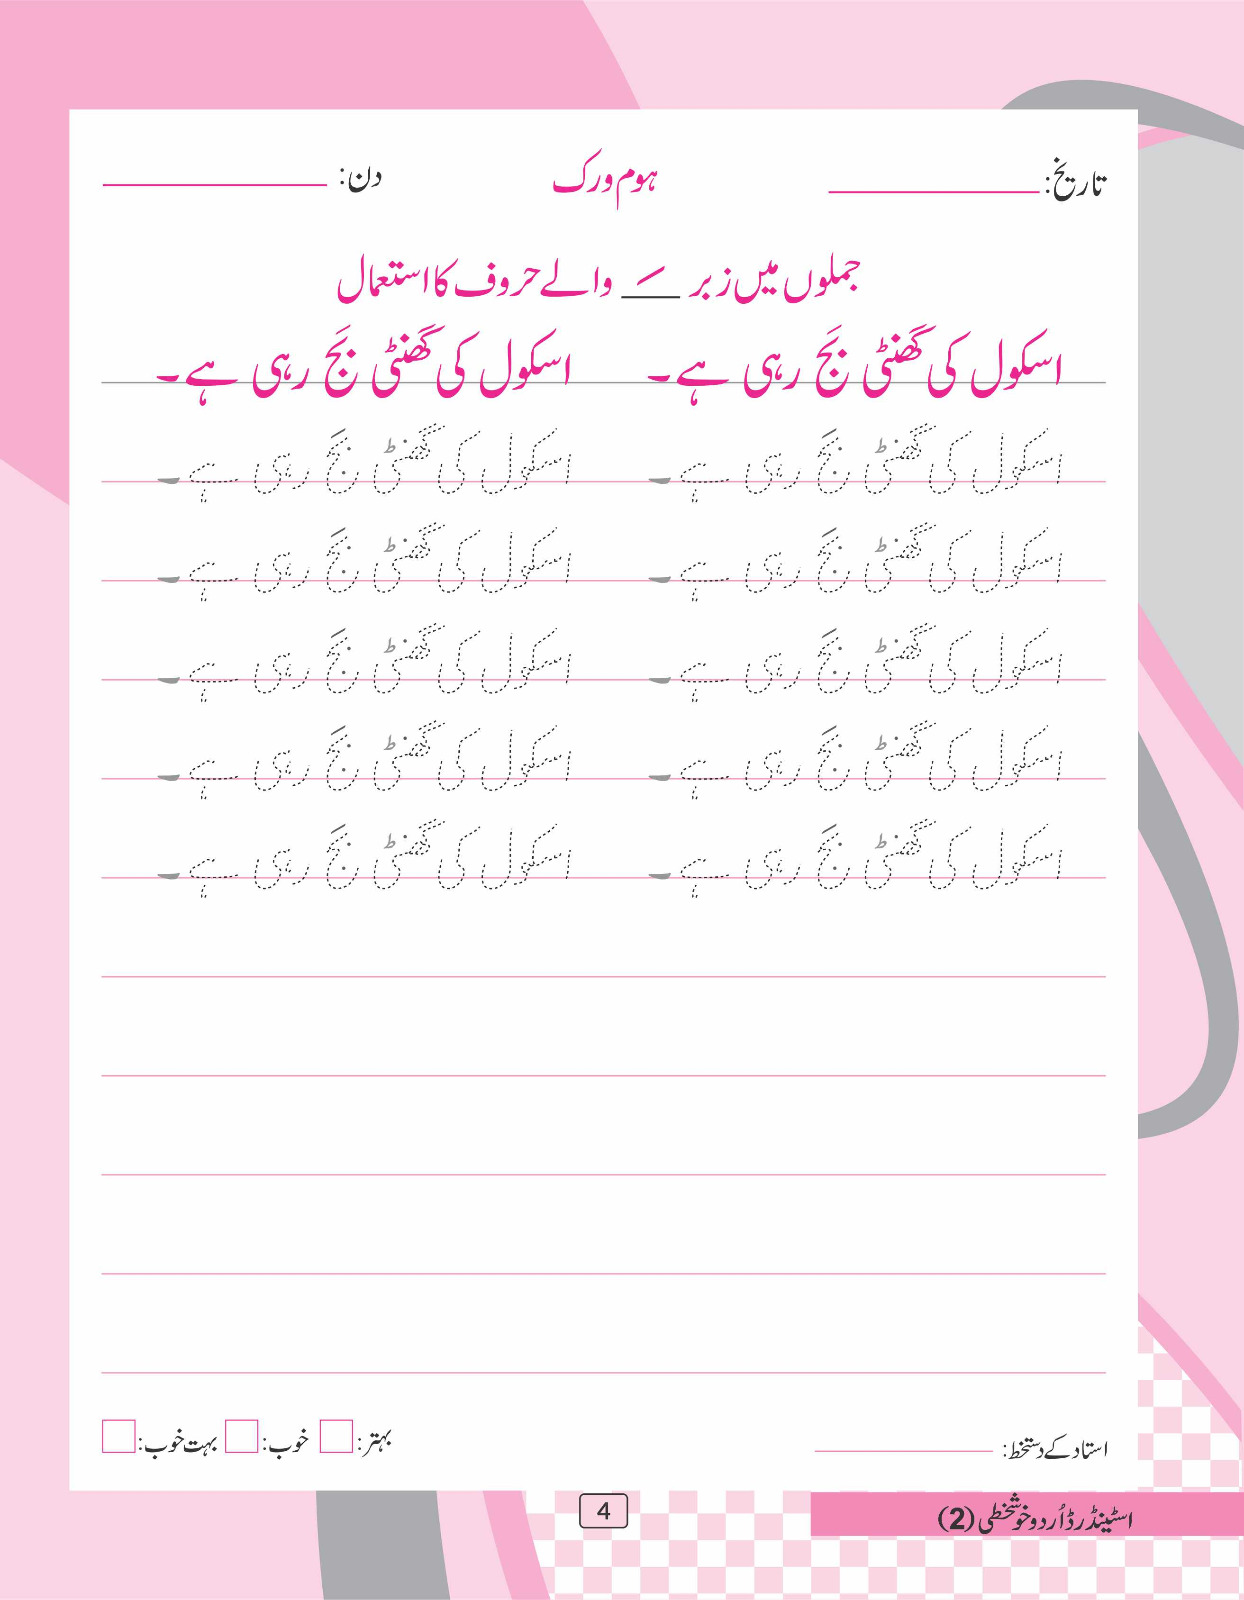 تاریخ: ____________ ہوم ورک دن: ____________
جملوں میں زبر ـَ والے حروف کا استعمال
اسکول کی گھنٹی بَج رہی ہے۔ اسکول کی گھنٹی بَج رہی ہے۔
اسکول کی گھنٹی بَج رہی ہے۔ اسکول کی گھنٹی بَج رہی ہے۔
اسکول کی گھنٹی بَج رہی ہے۔ اسکول کی گھنٹی بَج رہی ہے۔
اسکول کی گھنٹی بَج رہی ہے۔ اسکول کی گھنٹی بَج رہی ہے۔
اسکول کی گھنٹی بَج رہی ہے۔ اسکول کی گھنٹی بَج رہی ہے۔
اسکول کی گھنٹی بَج رہی ہے۔ اسکول کی گھنٹی بَج رہی ہے۔
استاد کے دستخط: ____________ بہتر: خوب: بہت خوب:
اسٹینڈرڈ اُردو خوشخطی (2) 4